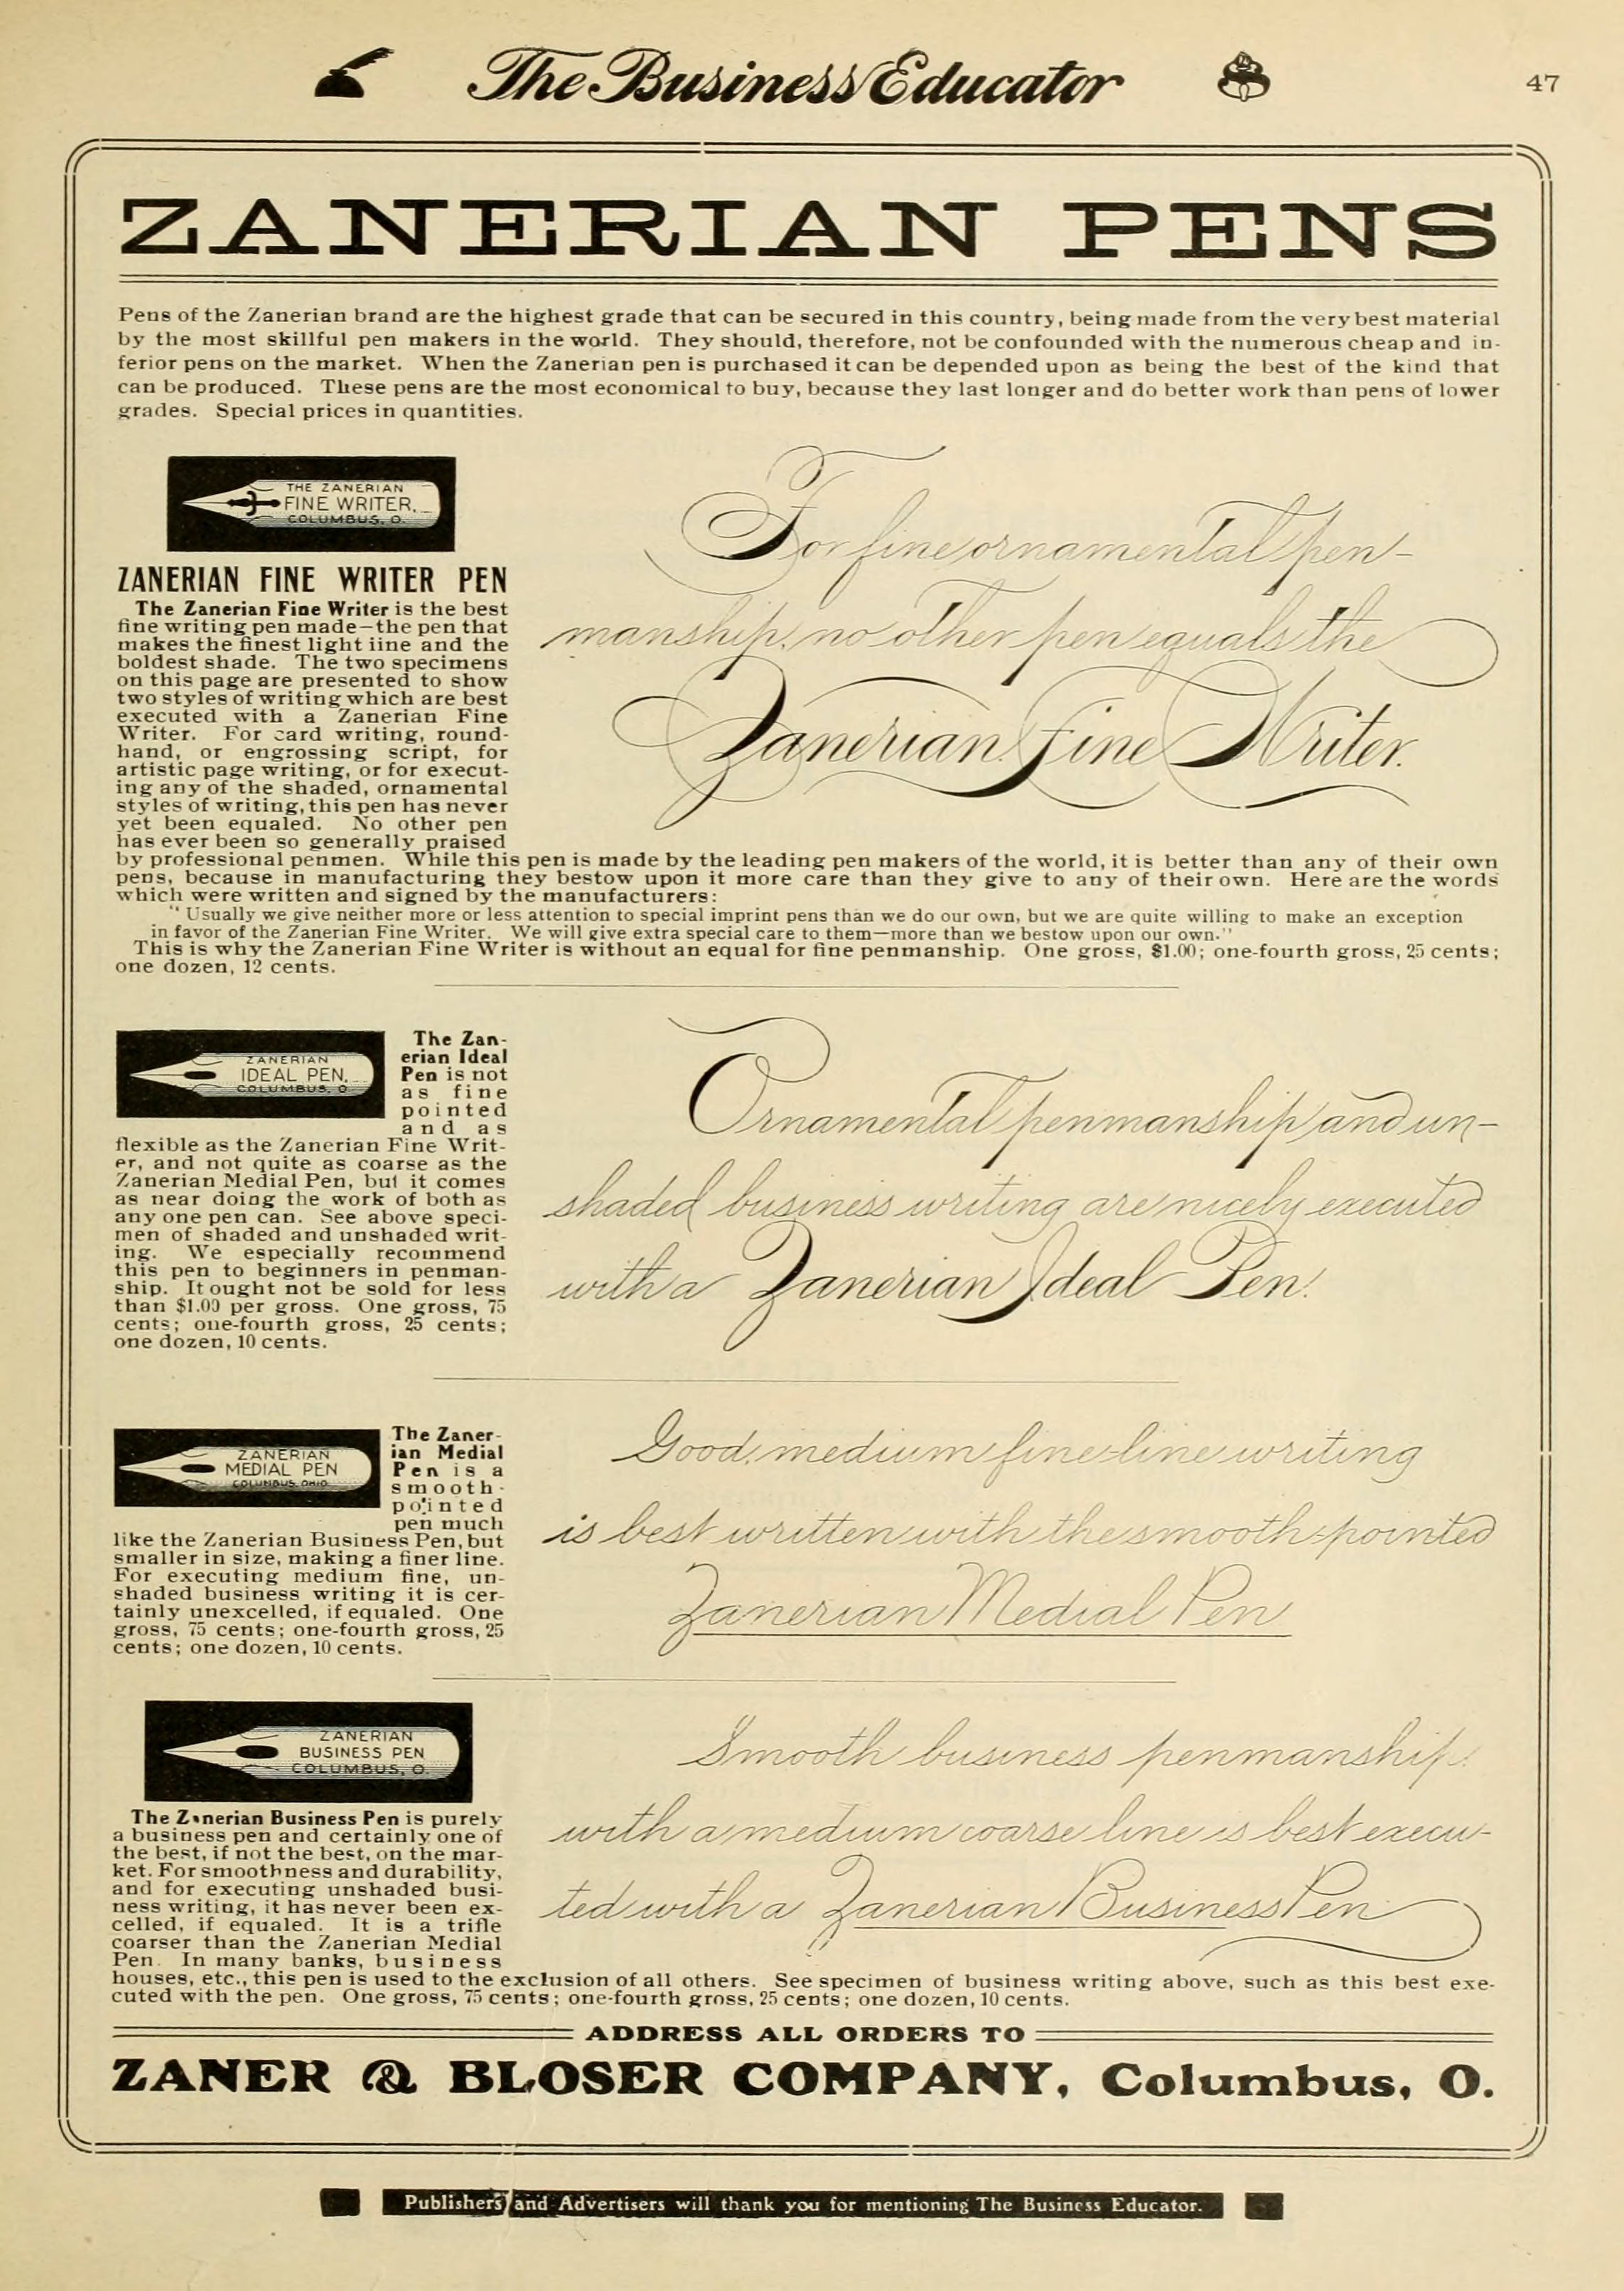 The Business Educator
47
ZANERIAN PENS
Pens of the Zanerian brand are the highest grade that can be secured in this country, being made from the very best material
by the most skillful pen makers in the world. They should, therefore, not be confounded with the numerous cheap and in-
ferior pens on the market. When the Zanerian pen is purchased it can be depended upon as being the best of the kind that
can be produced. These pens are the most economical to buy, because they last longer and do better work than pens of lower
grades. Special prices in quantities.
THE ZANERIAN
FINE WRITER.
COLUMBUS, O.
ZANERIAN FINE WRITER PEN
The Zanerian Fine Writer is the best
fine writing pen made—the pen that
makes the finest light iine and the
boldest shade. The two specimens
on this page are presented to show
two styles of writing which are best
executed with a Zanerian Fine
Writer. For card writing, round-
hand, or engrossing script, for
artistic page writing, or for execut-
ing any of the shaded, ornamental
styles of writing, this pen has never
yet been equaled. No other pen
has ever been so generally praised
by professional penmen. While this pen is made by the leading pen makers of the world, it is better than any of their own
pens, because in manufacturing they bestow upon it more care than they give to any of their own. Here are the words
which were written and signed by the manufacturers:
"Usually we give neither more or less attention to special imprint pens than we do our own, but we are quite willing to make an exception
in favor of the Zanerian Fine Writer. We will give extra special care to them—more than we bestow upon our own."
This is why the Zanerian Fine Writer is without an equal for fine penmanship. One gross, $1.00; one-fourth gross, 25 cents;
one dozen, 12 cents.
For fine ornamental pen-
manship, no other pen equals the
Zanerian Fine Writer.
ZANERIAN
IDEAL PEN,
COLUMBUS, O
The Zan-
erian Ideal
Pen is not
as fine
pointed
and as
flexible as the Zanerian Fine Writ-
er, and not quite as coarse as the
Zanerian Medial Pen, but it comes
as near doing the work of both as
any one pen can. See above speci-
men of shaded and unshaded writ-
ing. We especially recommend
this pen to beginners in penman-
ship. It ought not be sold for less
than $1.00 per gross. One gross, 75
cents; one-fourth gross, 25 cents;
one dozen, 10 cents.
Ornamental penmanship and un-
shaded business writing are nicely executed
with a Zanerian Ideal Pen.
ZANERIAN
MEDIAL PEN
COLUMBUS, OHIO
The Zaner-
ian Medial
Pen is a
smooth-
pointed
pen much
like the Zanerian Business Pen, but
smaller in size, making a finer line.
For executing medium fine, un-
shaded business writing it is cer-
tainly unexcelled, if equaled. One
gross, 75 cents; one-fourth gross, 25
cents; one dozen, 10 cents.
Good, medium fine-line writing
is best written with the smooth-pointed
Zanerian Medial Pen
ZANERIAN
BUSINESS PEN
COLUMBUS, O.
The Zanerian Business Pen is purely
a business pen and certainly one of
the best, if not the best, on the mar-
ket. For smoothness and durability,
and for executing unshaded busi-
ness writing, it has never been ex-
celled, if equaled. It is a trifle
coarser than the Zanerian Medial
Pen. In many banks, business
houses, etc., this pen is used to the exclusion of all others. See specimen of business writing above, such as this best exe-
cuted with the pen. One gross, 75 cents; one-fourth gross, 25 cents; one dozen, 10 cents.
Smooth business penmanship
with a medium coarse line is best execu-
ted with a Zanerian Business Pen
ADDRESS ALL ORDERS TO
ZANER & BLOSER COMPANY, Columbus, O.
Publishers and Advertisers will thank you for mentioning The Business Educator.